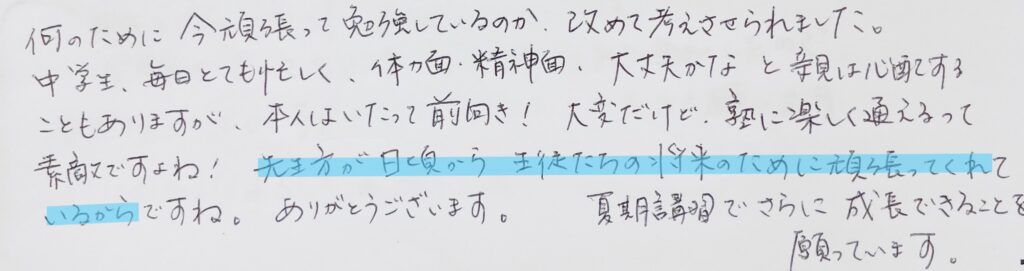 何のために今頑張って勉強しているのか、改めて考えさせられました。
中学生、毎日とても忙しく、体力面・精神面、大丈夫かなと親は心配する
こともありますが、本人はいたって前向き！大変だけど、塾に楽しく通えるって
素敵ですよね！先生方が日頃から生徒たちの将来のために頑張ってくれて
いるからですね。ありがとうございます。夏期講習でさらに成長できることを
願っています。